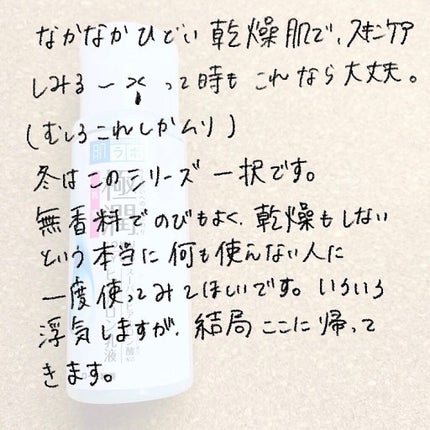 なかなかひどい乾燥肌で、スキンケア
しみるーxって時もこれなら大丈夫。
(むしろこれしかムリ)
冬はこのシリーズ一択です。
無香料でのびもよく、乾燥もしない
という本当に何も使えない人に
一度使ってみてほしいです。いろいろ
浮気しますが、結局ここに帰って
きます。
肌ラボ
極潤
ヒアルロン乳液